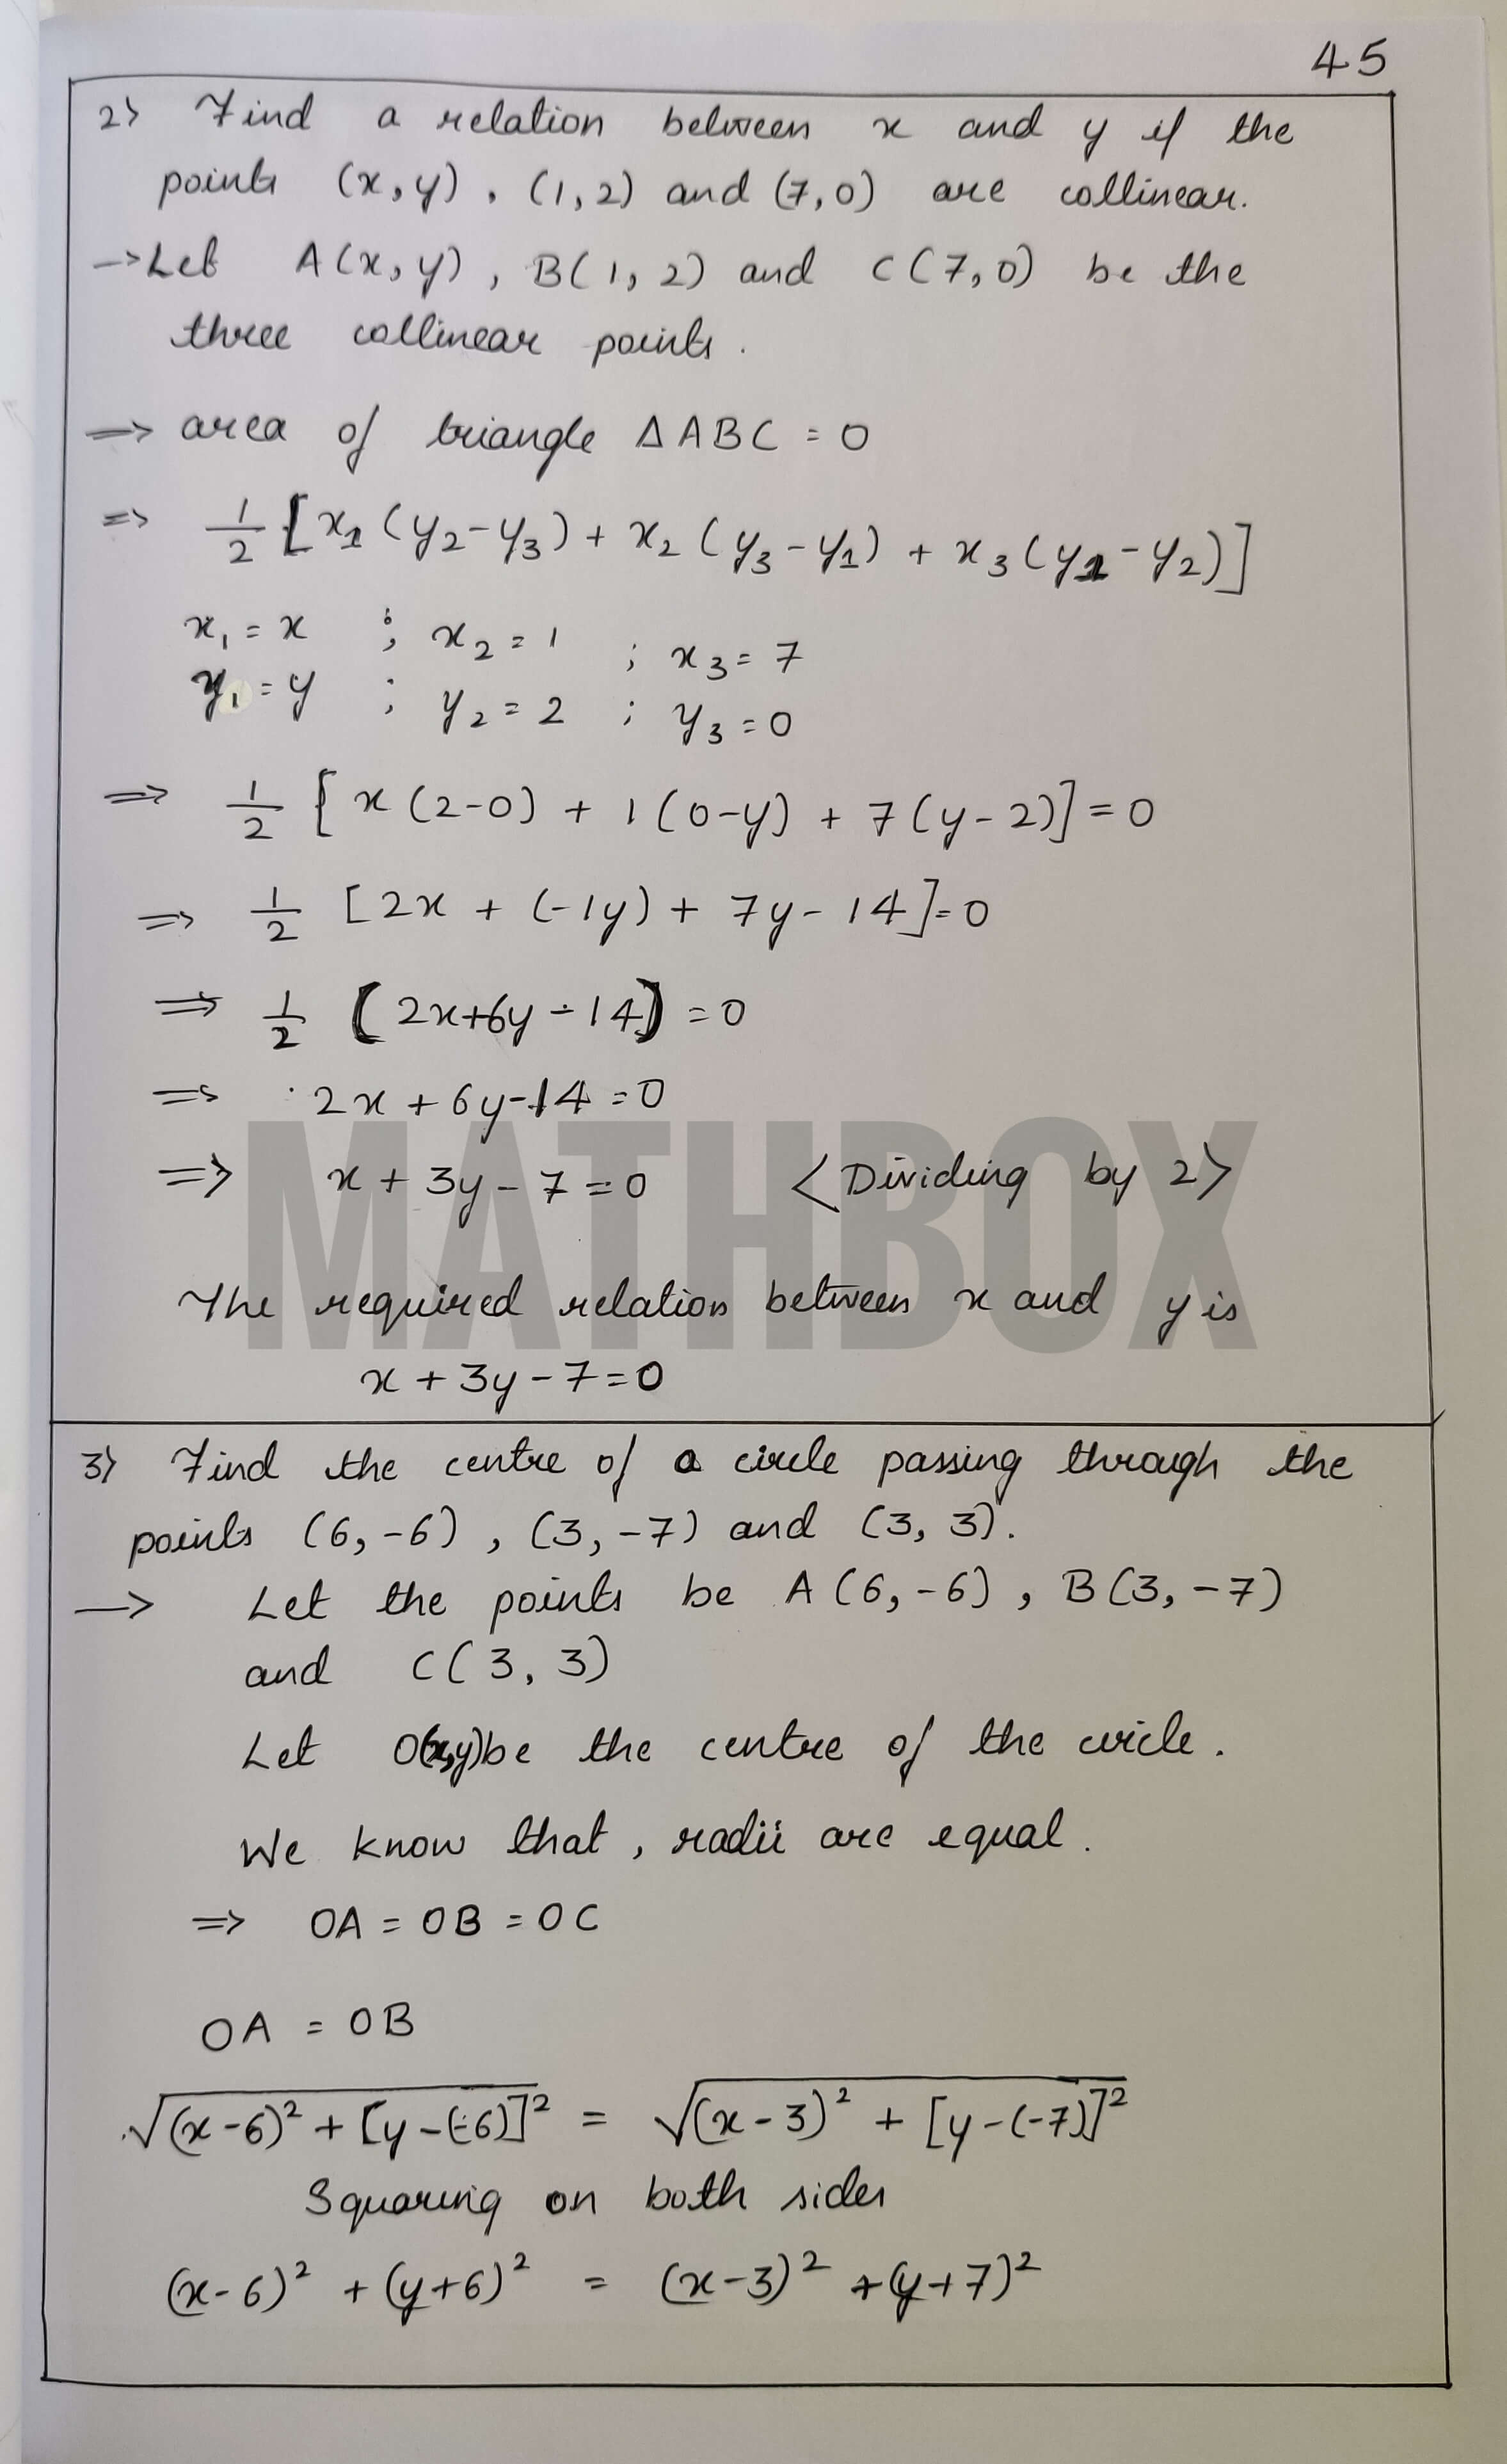 45
2> Find a relation between x and y if the
points (x,y), (1,2) and (7,0) are collinear.
->Let A(x,y), B(1,2) and C(7,0) be the
three collinear points.
=> area of triangle ΔABC = 0
=> 1/2 [x₁(y₂-y₃) + x₂(y₃-y₁) + x₃(y₁-y₂)]
x₁ = x ; x₂ = 1 ; x₃ = 7
y₁ = y ; y₂ = 2 ; y₃ = 0
=> 1/2 [x(2-0) + 1(0-y) + 7(y-2)] = 0
=> 1/2 [2x + (-1y) + 7y - 14] = 0
=> 1/2 (2x+6y-14) = 0
=> 2x + 6y-14 = 0
=> x + 3y - 7 = 0 <Dividing by 2>
MATHBOX
The required relation between x and y is
x + 3y - 7 = 0
3> Find the centre of a circle passing through the
points (6,-6), (3,-7) and (3,3).
-> Let the points be A(6,-6), B(3,-7)
and C(3,3)
Let O(x,y) be the centre of the circle.
We know that, radii are equal.
=> OA = OB = OC
OA = OB
√(x-6)² + [y-(-6)]² = √(x-3)² + [y-(-7)]²
Squaring on both sides
(x-6)² + (y+6)² = (x-3)² + (y+7)²